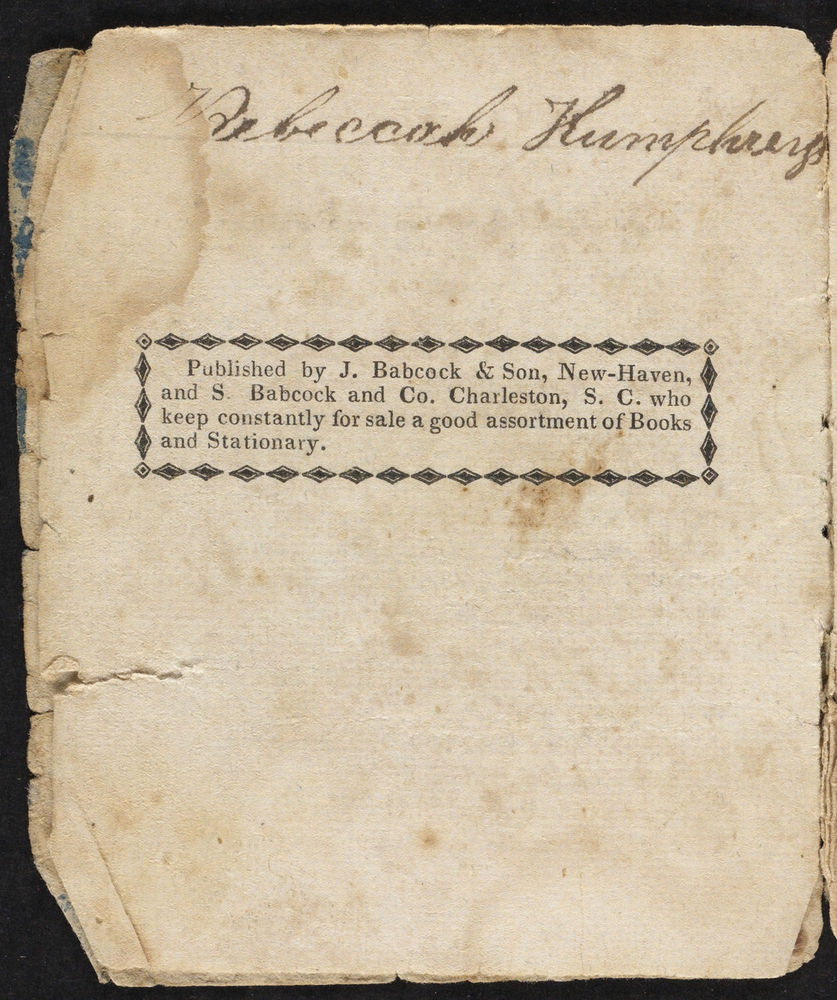 Rebeccah Humphreys
Published by J. Babcock & Son, New-Haven,
and S. Babcock and Co. Charleston, S. C. who
keep constantly for sale a good assortment of Books
and Stationary.